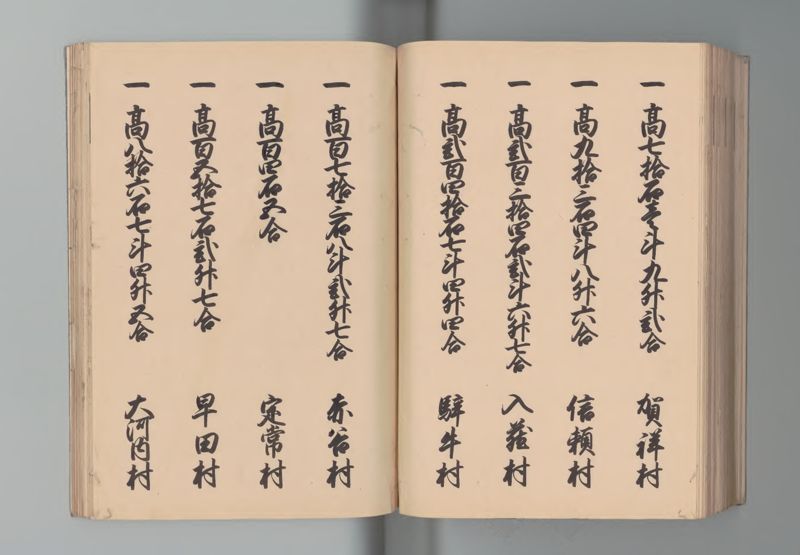 一 高七拾石壱斗九升弐合 賀祥村
一 高九拾三石四斗八升六合 信頼村
一 高弐百三拾四石弐斗六升七合 入蔵村
一 高弐百四拾石七斗四升四合 騂牛村
一 高百七拾三石八斗弐升七合 赤谷村
一 高百四石五合 定常村
一 高百五拾七石弐升七合 早田村
一 高八拾六石七斗四升五合 大河内村